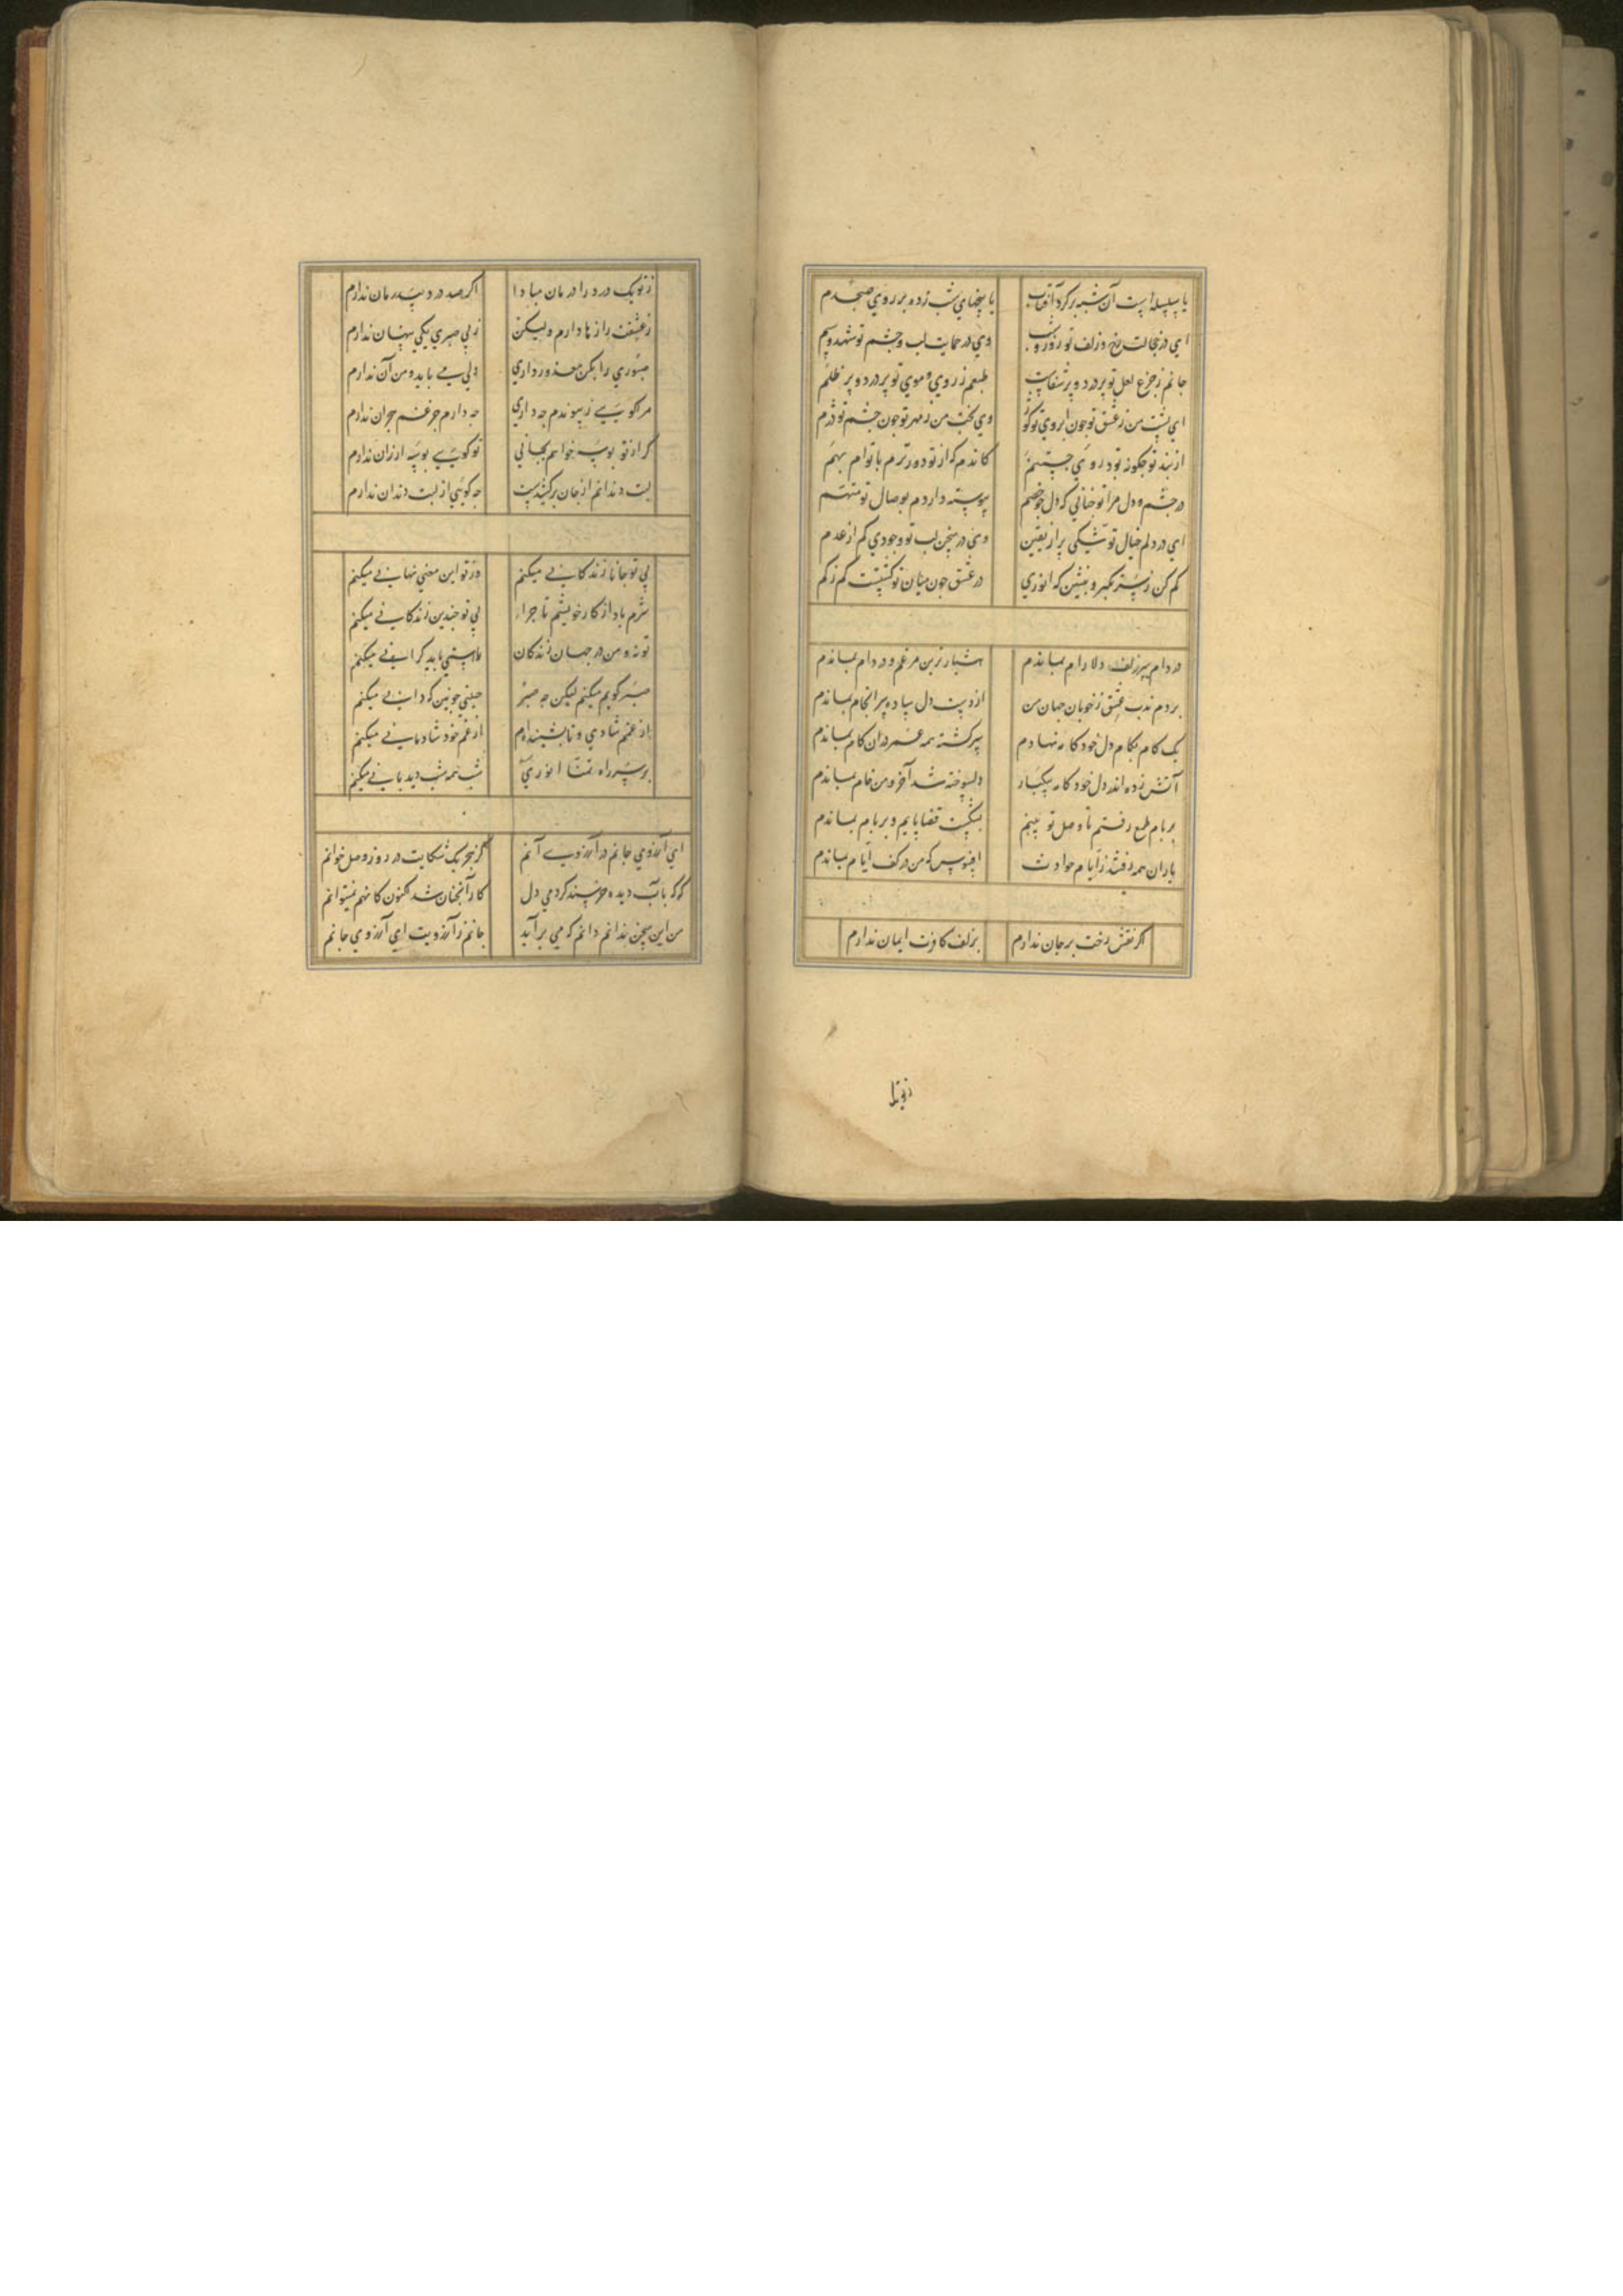 یا سلسله است آن شبه برکرد آفتاب یا سخنای شب زده بر روی صبحدم
ای در خجالت رخ و زلف تو روز و شب وی در حمایت لب و چشم تو شهد و سم
جانم ز جزع لعل تو پر درد و پر شفاست طبعم ز روی و موی تو پر درد و پر ظلم
ای پشت من ز عشق تو جون ابروی تو کوز وی بخت من ز مهر تو جون چشم تو دژم
از بند تو جکونه بود روی جستنم کاندم که از تو دورترم با توام بهم
در چشم و دل مرا تو خیالی که دل جو خصم پیوسته داردم بوصال تو متهم
ای در دلم خیال تو شکی پر از یقین وی در سخن لب تو وجودی کم از عدم
کم کن ز سر تکبر و بنشین که انوری در عشق جون میان تو کشتست کم ز کم
در دام سر زلف دلارام بماندم هشیارترین مرغم و در دام بماندم
بردم ندب عشق ز خوبان جهان من از دست دل ساده سرانجام بماندم
یک کام بکام دل خود کامه نهادم سرکشته همه عمر در ان کام بماندم
آتش زده اندر دل خود کامه بیکبار دلسوخته شد آخر و من خام بماندم
بر بام طمع رفتم تا وصل تو بینم بشکست قضا پایم و بر بام بماندم
یاران همه رفتند ز ایام حوادث افسوس که من در کف ایام بماندم
اکر نقش رخت بر جان ندارم بزلف کافرت ایمان ندارم
ز تو یک
ز تو یک درد را درمان مبادا اکر صد درد بیدرمان ندارم
ز عشقت رازها دارم ولیکن ز بی صبری یکی پنهان ندارم
صبوری را بکن معذور داری ولی می باید و من آن ندارم
مرا کویی ز پیوندم جه داری جه دارم جز غم هجران ندارم
کر از تو بوسه خواهم بجانی تو کویی بوسه ارزان ندارم
لبت دندانم از جان برکشیدست جه کویی از لبت دندان ندارم
بی تو جانا زندکانی میکنم وز تو این معنی نهانی میکنم
شرم باد از کار خویشم تا جرا بی تو جندین زندکانی میکنم
تو نه و من در جهان زندکان راستی باید کرانی میکنم
صبر کویم میکنم لیکن جه صبر حیلتی جونین که دانی میکنم
از غم خود شادمانی میکنم
بر سر راه تمنا انوری شب همه شب دیدبانی میکنم
ای آرزوی جانم در آرزوی آنم کز هجر یک شکایت در روز وصل خوانم
کو که باب دیده خرسند کردمی دل کار آنجنان شد اکنون کانهم نمیتوانم
من این سخن ندانم دانم که می برآید جانم ز آرزویت ای آرزوی جانم